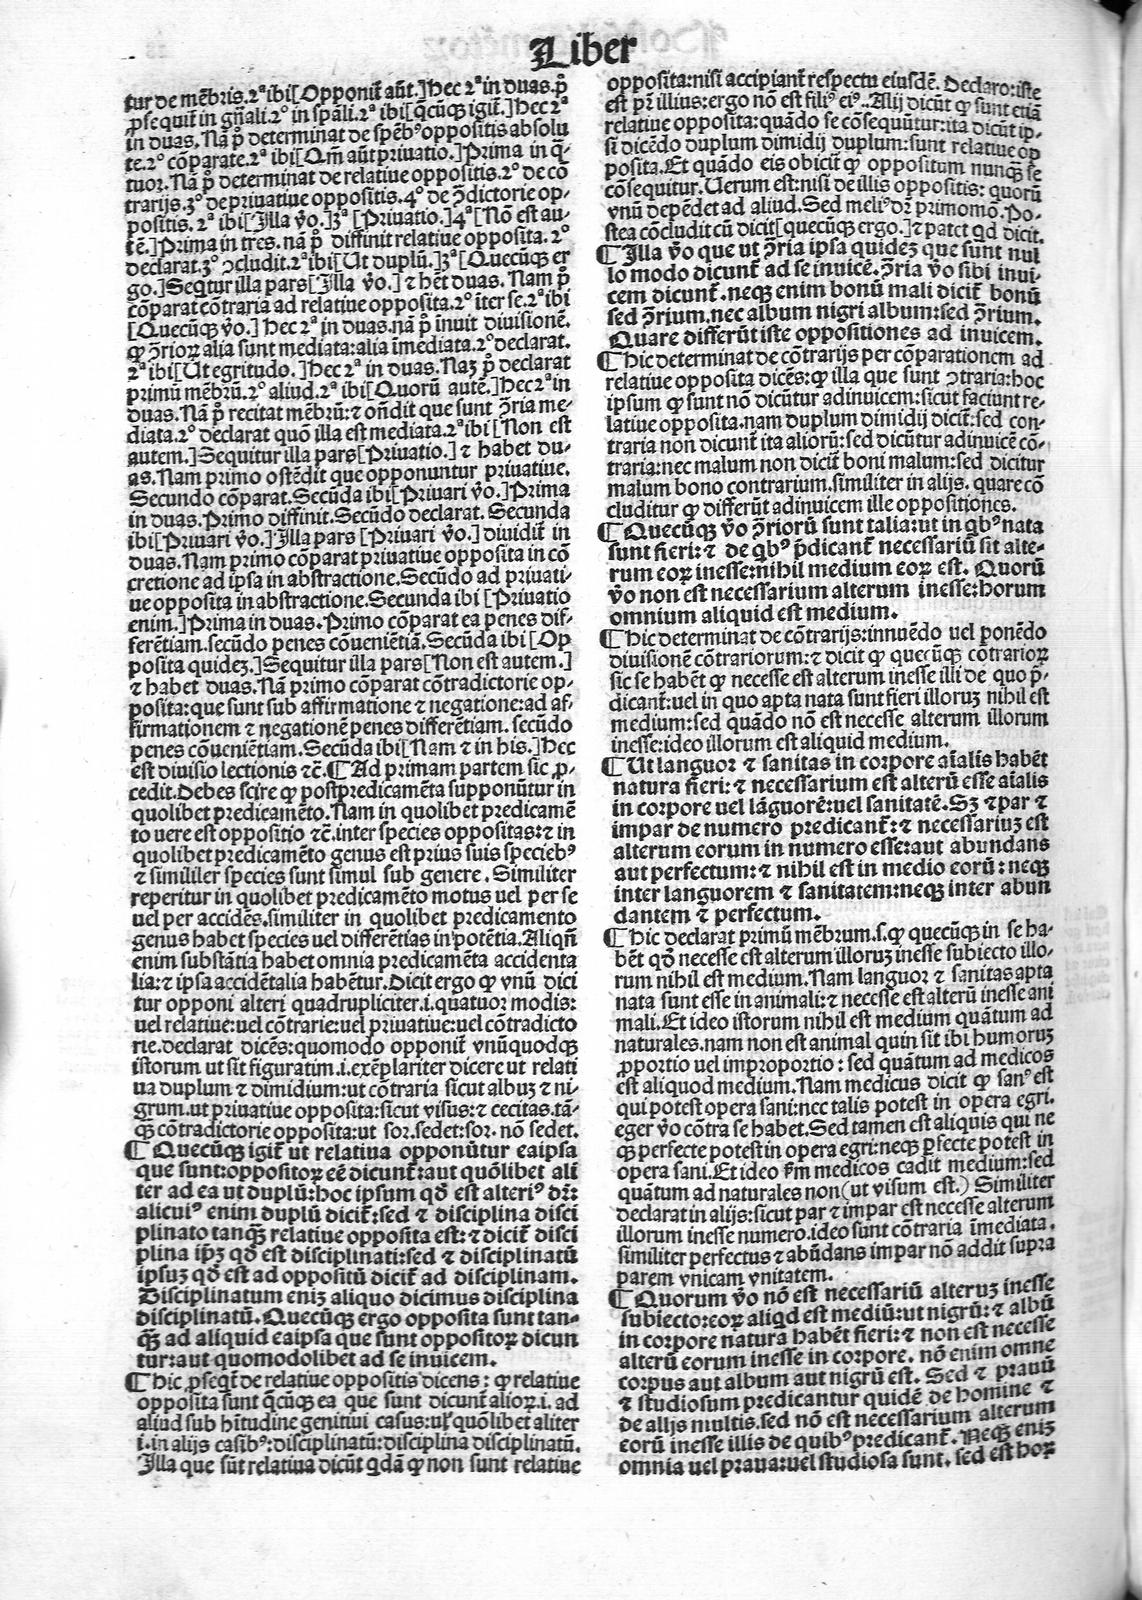 Liber
tur de mēbris.2ª ibi[Opponit̄ aūt.]Hec 2ª in duas.p̄
ꝓsequit̄ in gn̄ali.2º in sp̄ali.2ª ibi[q̄cūqꝫ igit̄.]Hec 2ª
in duas.Nā p̄ determinat de spēbꝰ oppositis absolu
te.2º cōparate.2ª ibi[Qm̄ aūt priuatio.]Prima in q̄-
tuor.Nā p̄ determinat de relatiue oppositis.2º de cō
trarijs.3º de priuatiue oppositis.4º de ↄ̄dictorie op-
positis.2ª ibi[Illa v̄o.]3ª[Priuatio.]4ª[Nō est au-
tē.]Prima in tres.nā p̄ diffinit relatiue opposita.2º
declarat.3º ↄcludit.2ª ibi[Ut duplū.]3ª[Quecūqꝫ er
go.]Seq̄tur illa pars[Illa v̄o.]⁊ hēt duas.Nam p̄
cōparat cōtraria ad relatiue opposita.2º iter se.2ª ibi
[Quecūqꝫ v̄o.]Hec 2ª in duas.nā p̄ inuit diuisionē.
ꝙ ↄ̄rioꝝ alia sunt mediata:alia īmediata.2º declarat.
2ª ibi[Ut egritudo.]Hec 2ª in duas.Naꝫ p̄ declarat
primū mēbrū.2º aliud.2ª ibi[Quorū autē.]Hec 2ª in
duas.Nā p̄ recitat mēbrū:⁊ on̄dit que sunt ↄ̄ria me-
diata.2º declarat quō illa est mediata.2ª ibi[Non est
autem.]Sequitur illa pars[Priuatio.]⁊ habet du-
as.Nam primo ostēdit que opponuntur priuatiue.
Secundo cōparat.Secūda ibi[Priuari v̄o.]Prima
in duas.Primo diffinit.Secūdo declarat.Secunda
ibi[Priuari v̄o.]Illa pars [Priuari v̄o.]diuidit̄ in
duas.Nam primo cōparat priuatiue opposita in cō
cretione ad ipsa in abstractione.Secūdo ad priuati-
ue opposita in abstractione.Secunda ibi [Priuatio
enim.]Prima in duas.Primo cōparat ea penes dif-
ferētiam.secūdo penes cōueniētiā.Secūda ibi [Op
posita quideꝫ.]Sequitur illa pars[Non est autem.]
⁊ habet duas.Nā primo cōparat cōtradictorie op-
posita:que sunt sub affirmatione ⁊ negatione:ad af-
firmationem ⁊ negationē penes differētiam. secūdo
penes cōueniētiam.Secūda ibi[Nam ⁊ in his.]Hec
est diuisio lectionis ⁊c̄.¶Ad primam partem sic ꝓ-
cedit.Debes scire ꝙ postpredicamēta supponūtur in
quolibet predicamēto.Nam in quolibet predicamē
to uere est oppositio ⁊c̄.inter species oppositas:⁊ in
quolibet predicamēto genus est prius suis speciebꝰ
⁊ similiter species sunt simul sub genere. Similiter
reperitur in quolibet predicamēto motus uel per se
uel per accidēs.similiter in quolibet predicamento
genus habet species uel differētias in potētia.Aliqn̄
enim substātia habet omnia predicamēta accidenta
lia:⁊ ipsa accidētalia habētur.Dicit ergo ꝙ vnū dici
tur opponi alteri quadrupliciter.i.quatuor modis:
uel relatiue:uel cōtrarie:uel priuatiue:uel cōtradicto
rie.declarat dicēs:quomodo opponit̄ vnūquodqꝫ
istorum ut sit figuratim.i.exēplariter dicere ut relati
ua duplum ⁊ dimidium:ut cōtraria sicut albuꝫ ⁊ ni-
grum.ut priuatiue opposita:sicut visus:⁊ cecitas.tā-
qꝫ cōtradictorie opposita:ut sor.sedet:sor. nō sedet.
¶Quecūqꝫ igit̄ ut relatiua opponūtur eaipsa
que sunt:oppositoꝝ eē dicunt̄:aut quōlibet ali
ter ad ea ut duplū:hoc ipsum qd̄ est alteriꝰ dr̄:
alicuiꝰ enim duplū dicit̄:sed ⁊ disciplina disci
plinato tanqꝫ relatiue opposita est:⁊ dicit̄ disci
plina ip̄ꝫ qd̄ est disciplinati:sed ⁊ disciplinatū
ipsuꝫ qd̄ est ad oppositū dicit̄ ad disciplinam.
Disciplinatum eniꝫ aliquo dicimus disciplina
disciplinatū.Quecūqꝫ ergo opposita sunt tan-
qꝫ ad aliquid eaipsa que sunt oppositoꝝ dicun
tur:aut quomodolibet ad se inuicem.
¶Hic ꝓseqt̄ de relatiue oppositis dicens: ꝙ relatiue
opposita sunt q̄cūqꝫ ea que sunt dicunt̄ alioꝝ.i. ad
aliud sub hītudine genitiui casus:uł quōlibet aliter
i.in alijs casibꝰ:disciplinatū:disciplina disciplinatū.
Illa que sūt relatiua dicūt qdā ꝙ non sunt relatiue
opposita:nisi accipiant̄ respectu eiusdē.Declaro:iste
est pr̄ illius:ergo nō est filiꝰ eiꝰ.Alij dicūt ꝙ sunt etiā
relatiue opposita:quādo se cōsequūtur:ita dicūt ip-
si dicēdo duplum dimidij duplum:sunt relatiue op
posita.Et quādo eis obicit̄ ꝙ oppositum nunqꝫ se
cōsequitur.Uerum est:nisi de illis oppositis: quorū
vnū depēdet ad aliud.Sed meliꝰ dr̄ primomō.Po-
stea cōcludit cū dicit[quecūqꝫ ergo.]⁊ patet qd dicit.
¶Illa v̄o que ut ↄ̄ria ipsa quideꝫ que sunt nul
lo modo dicunt̄ ad se inuicē.ↄ̄ria v̄o sibi inui-
cem dicunt̄.neqꝫ enim bonū mali dicit̄ bonū
sed ↄ̄rium.nec album nigri album:sed ↄ̄rium.
Quare differūt iste oppositiones ad inuicem.
¶Hic determinat de cōtrarijs per cōparationem ad
relatiue opposita dicēs:ꝙ illa que sunt ↄtraria:hoc
ipsum ꝙ sunt nō dicūtur adinuicem:sicut faciunt re-
latiue opposita.nam duplum dimidij dicit̄:sed con-
traria non dicunt̄ ita aliorū:sed dicūtur adinuicē cō-
traria:nec malum non dicit̄ boni malum:sed dicitur
malum bono contrarium.similiter in alijs. quare cō
cluditur ꝙ differūt adinuicem ille oppositiones.
¶Quecūqꝫ v̄o ↄ̄riorū sunt talia:ut in qbꝰ nata
sunt fieri:⁊ de qbꝰ p̄dicant̄ necessariū sit alte-
rum eoꝝ inesse:nihil medium eoꝝ est. Quorū
v̄o non est necessarium alterum inesse:horum
omnium aliquid est medium.
¶Hic determinat de cōtrarijs:innuēdo uel ponēdo
diuisionē cōtrariorum:⁊ dicit ꝙ quecūqꝫ cōtrarioꝝ
sic se habēt ꝙ necesse est alterum inesse illi de quo p̄-
dicant̄:uel in quo apta nata sunt fieri illoruꝫ nihil est
medium:sed quādo nō est necesse alterum illorum
inesse:ideo illorum est aliquid medium.
¶Ut languor ⁊ sanitas in corpore aīalis habēt
natura fieri:⁊ necessarium est alterū esse aīalis
in corpore uel lāguorē:uel sanitatē.Sꝫ ⁊ par ⁊
impar de numero predicant̄:⁊ necessariuꝫ est
alterum eorum in numero esse:aut abundans
aut perfectum:⁊ nihil est in medio eorū:neqꝫ
inter languorem ⁊ sanitatem:neqꝫ inter abun
dantem ⁊ perfectum.
¶Hic declarat primū mēbrum.s.ꝙ quecūqꝫ in se ha-
bēt qd̄ necesse est alterum illoruꝫ inesse subiecto illo-
rum nihil est medium. Nam languor ⁊ sanitas apta
nata sunt esse in animali:⁊ necesse est alterū inesse ani
mali.Et ideo istorum nihil est medium quātum ad
naturales.nam non est animal quin sit ibi humoruꝫ
ꝓportio uel improportio: sed quātum ad medicos
est aliquod medium.Nam medicus dicit ꝙ sanꝰ est
qui potest opera sani:nec talis potest in opera egri.
eger v̄o cōtra se habet.Sed tamen est aliquis qui ne
qꝫ perfecte potest in opera egri:neqꝫ ꝑfecte potest in
opera sani.Et ideo ẜm medicos cadit medium:sed
quātum ad naturales non(ut visum est.) Similiter
declarat in alijs:sicut par ⁊ impar est necesse alterum
illorum inesse numero.ideo sunt cōtraria īmediata.
similiter perfectus ⁊ abūdans impar nō addit supra
parem vnicam vnitatem.
¶Quorum v̄o nō est necessariū alteruꝫ inesse
subiecto:eoꝝ aliqd est mediū:ut nigrū:⁊ albū
in corpore natura habēt fieri:⁊ non est necesse
alterū eorum inesse in corpore. nō enim omne
corpus aut album aut nigrū est. Sed ⁊ prauū
⁊ studiosum predicantur quidē de homine ⁊
de alijs multis.sed nō est necessarium alterum
eorū inesse illis de quibꝰ predicant̄. Neqꝫ eniꝫ
omnia uel praua:uel studiosa sunt. sed est hoꝝ